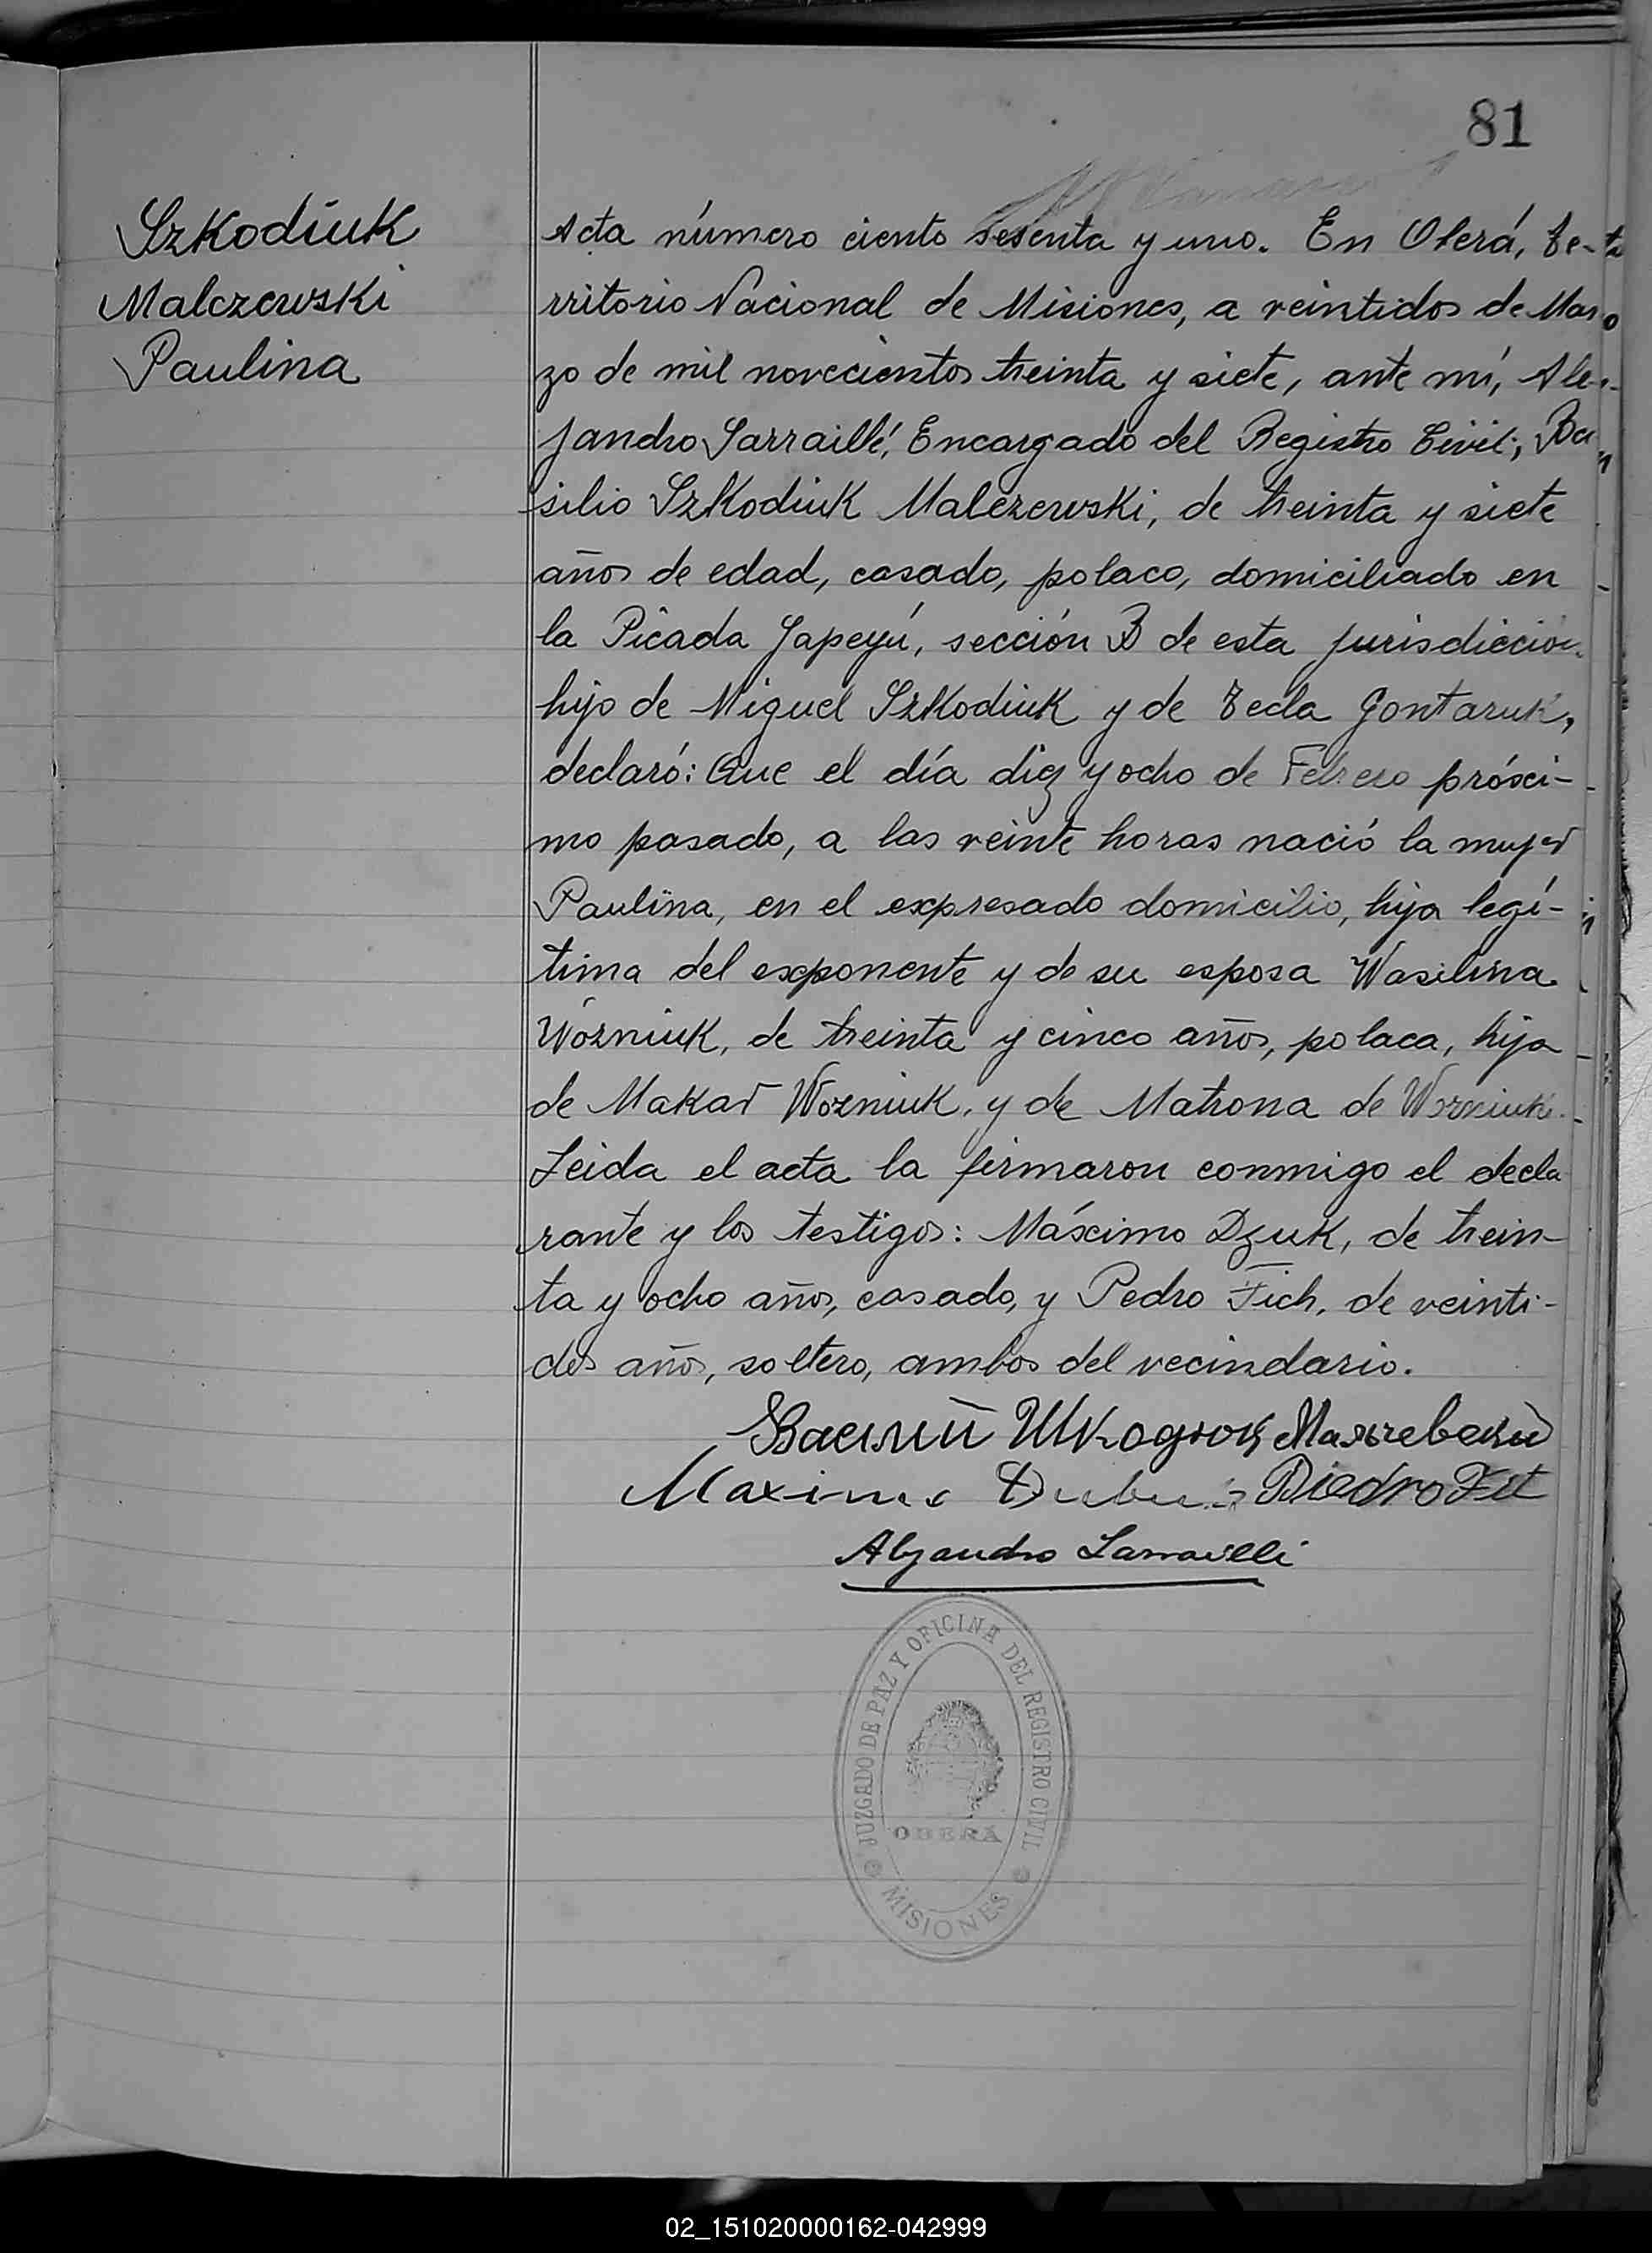 81
Szkodiuk
Malczewski
Paulina
Acta número ciento sesenta y uno. En Oberá, Te-
rritorio Nacional de Misiones, a veintidos de Mar
zo de mil novecientos treinta y siete, ante mí, Ale-
jandro Sarraillé, Encargado del Registro Civil; Ba
silio Szkodiuk Malczewski, de treinta y siete
años de edad, casado, polaco, domiciliado en
la Picada Yapeyú, sección B de esta jurisdicción
hijo de Miguel Szkodiuk y de Tecla Gontaruk,
declaró: Que el día diez y ocho de Febrero próxi-
mo pasado, a las veinte horas nació la mujer
Paulina, en el expresado domicilio, hija legí-
tima del exponente y de su esposa Wasilina
Wózniuk, de treinta y cinco años, polaca, hija
de Makar Wozniuk, y de Matrona de Wozniuk.
Leida el acta la firmaron conmigo el decla
rante y los testigos: Máximo Dzuk, de trein-
ta y ocho años, casado, y Pedro Fich, de veinti-
dos años, soltero, ambos del vecindario.
Василий Шкодюк Мальчевский
Maximo Piedro Fit
Alejandro Sarraillé
JUZGADO DE PAZ Y OFICINA DEL REGISTRO CIVIL
OBERÁ
MISIONES
02_151020000162-042999